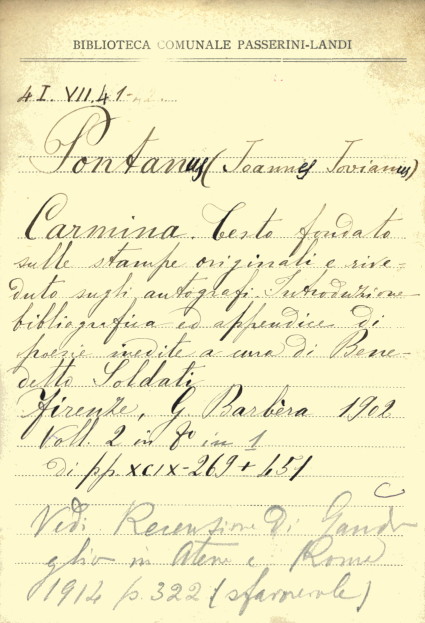 BIBLIOTECA COMUNALE PASSERINI-LANDI
4 I. VII. 41
Pontanus (Joannes Jovianus)
Carmina. Testo fondato
sulle stampe originali e rive-
duto sugli autografi. Introduzione
bibliografica ed appendice di
poesie inedite a cura di Bene-
detto Soldati
Firenze, G. Barbèra 1902
Voll. 2 in 8º in 1
di pp. XCIX-269 + 451
C
Vedi Recensione di Gandi
glio in Atene e Roma
1914 p. 322 (sfavorevole)